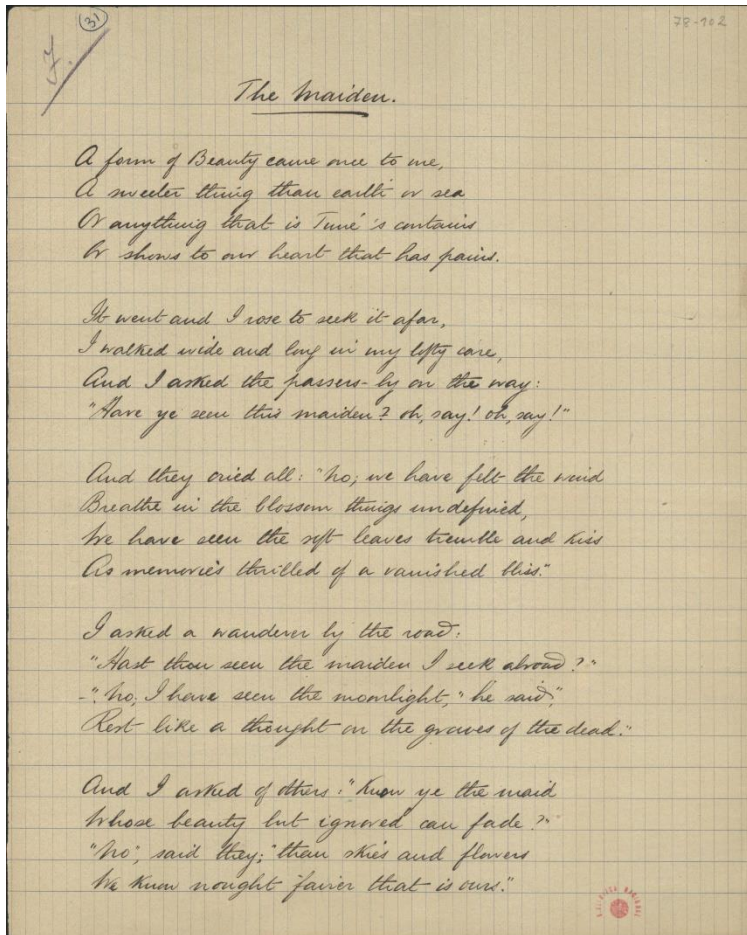 (31)
78-102
The Maiden.
A form of Beauty came once to me,
A sweeter thing than earth or sea
Or anything that is Time's contains
Or shows to our heart that has pains.
It went and I rose to seek it afar,
I walked wide and long in my lofty care,
And I asked the passers-by on the way:
"Have ye seen this maiden? oh, say! oh, say!"
And they cried all: "No; we have felt the wind
Breathe in the blossom things undefined,
We have seen the soft leaves tremble and kiss
As memories thrilled of a vanished bliss."
I asked a wanderer by the road:
"Hast thou seen the maiden I seek abroad?"
-"No, I have seen the moonlight," he said",
Rest like a thought on the graves of the dead."
And I asked of others: "Know ye the maid
Whose beauty but ignored can fade?"
"No", said they; "than skies and flowers
We know nought fairer that is ours."